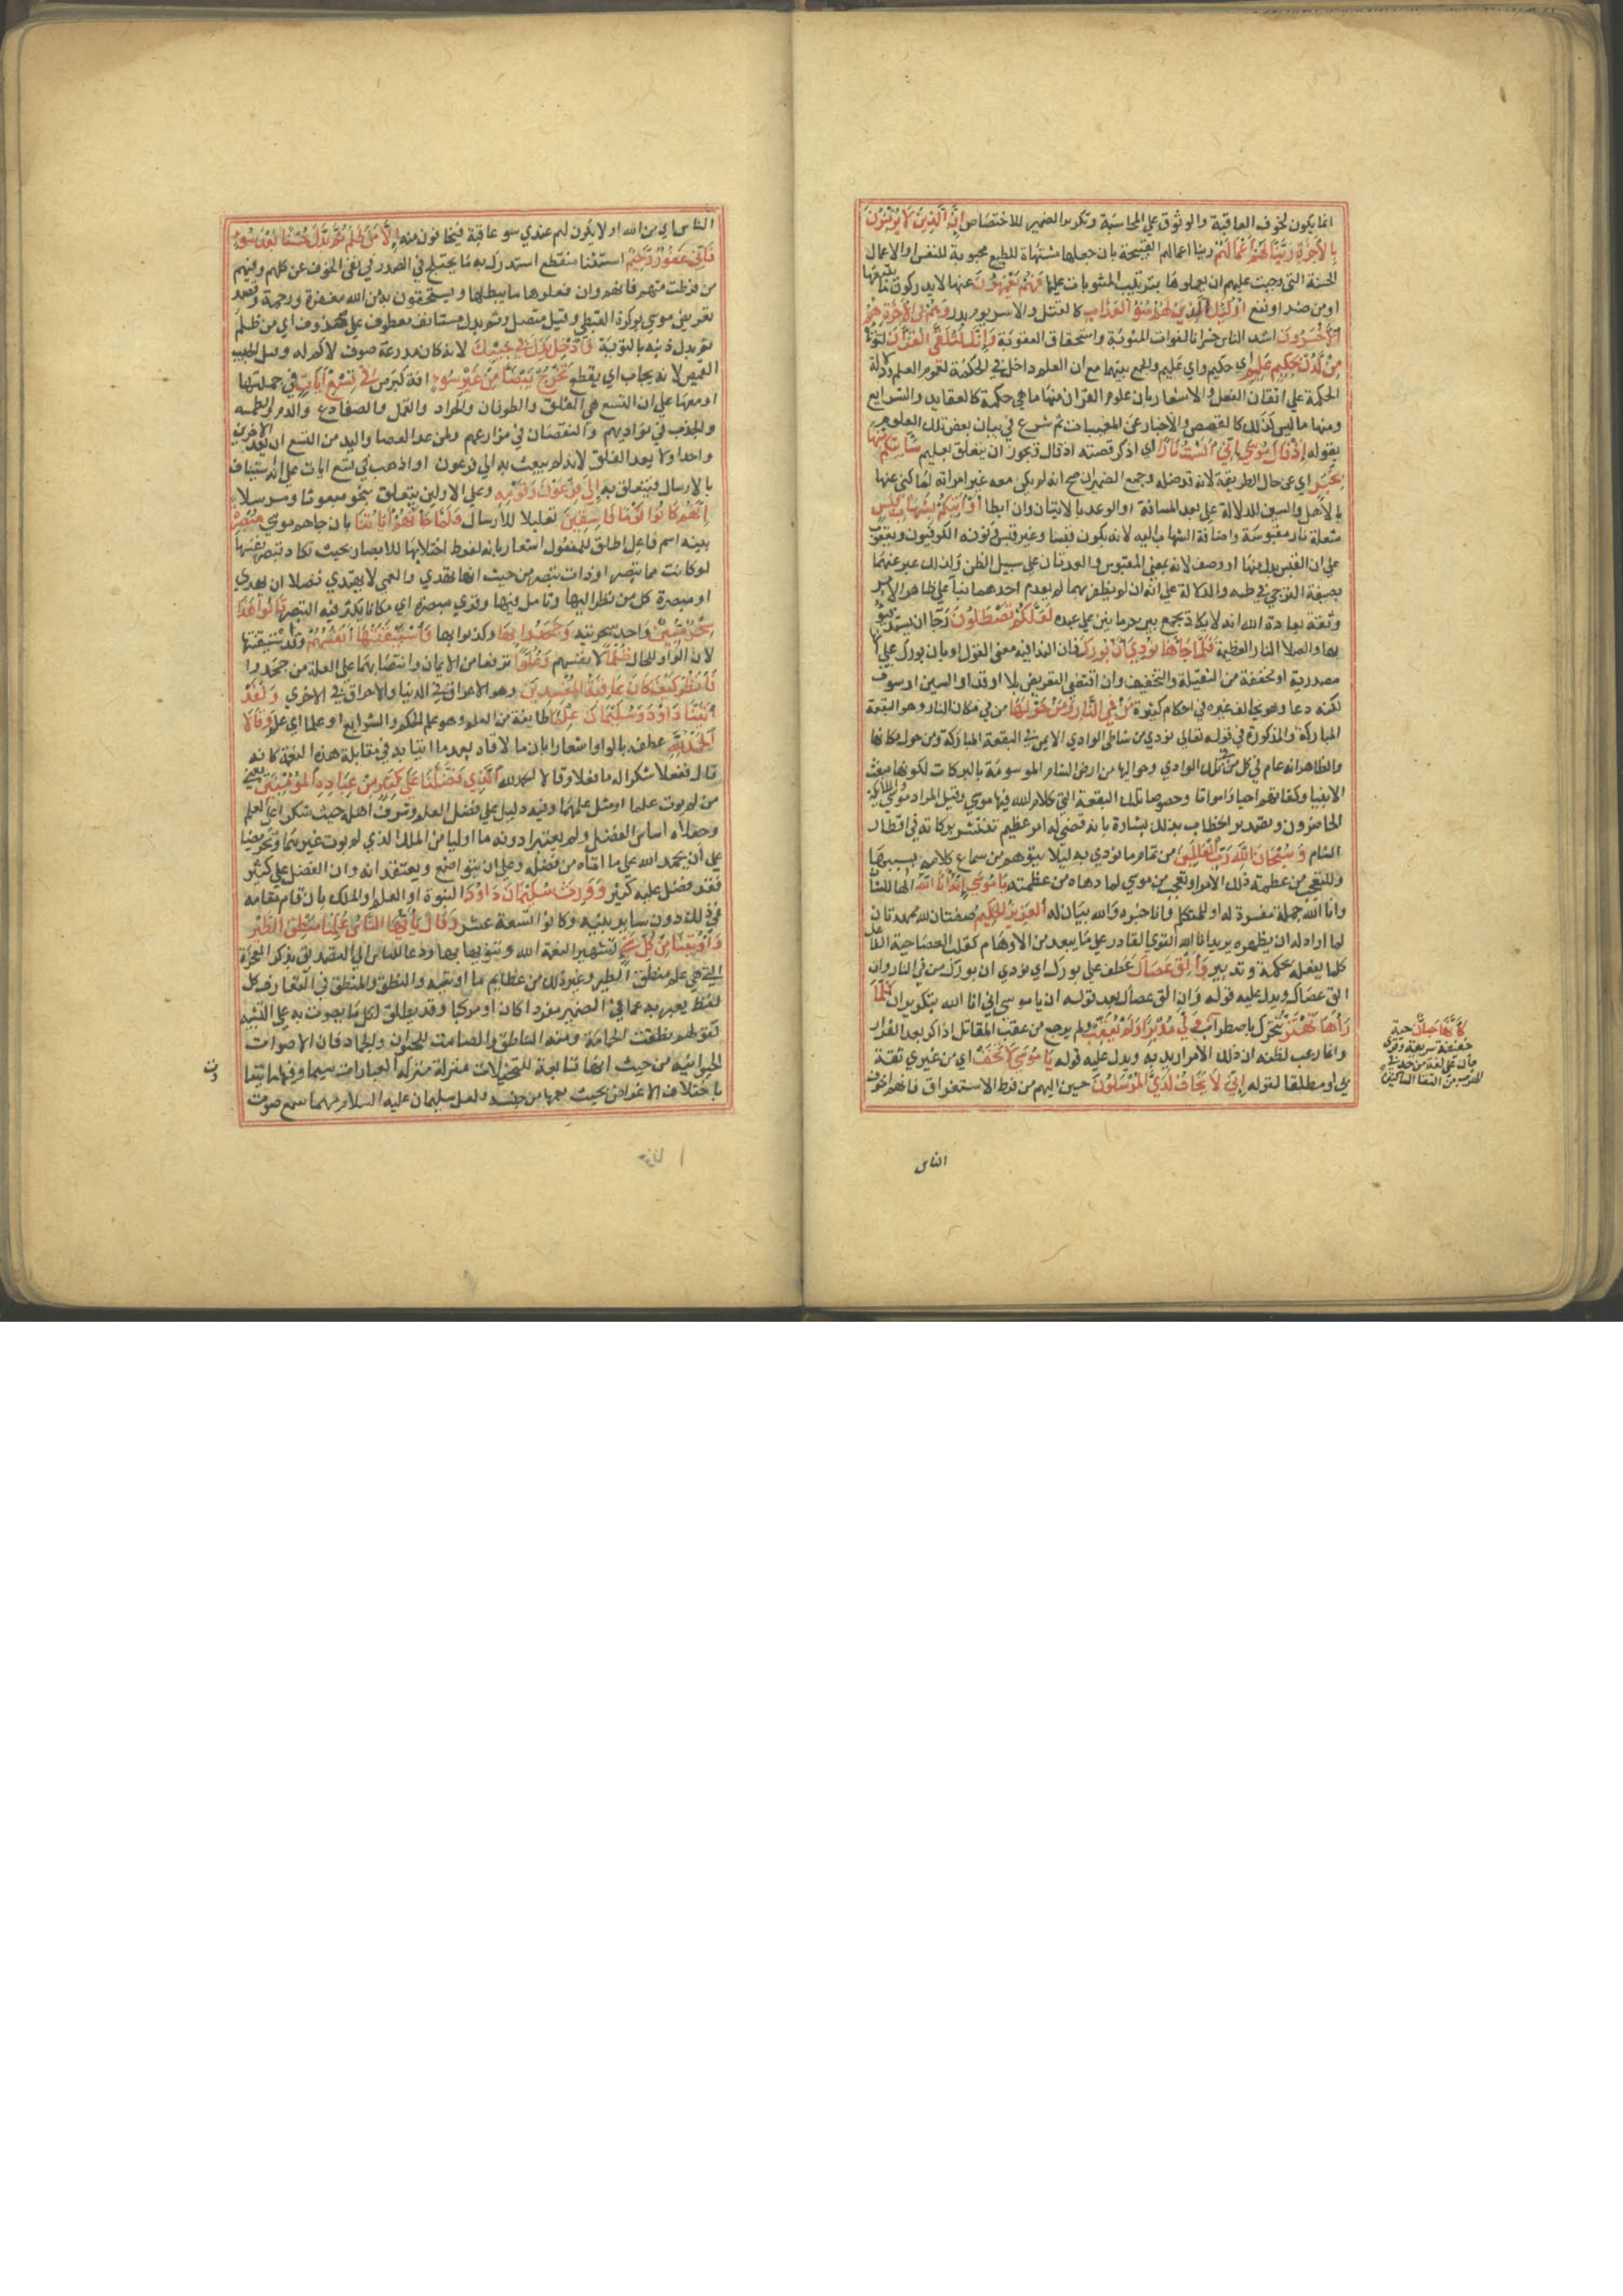 انما يكون لخوف العاقبة والوثوق على المحاسبة وتكرير الضمير للاختصاص اِنَّ الَّذِينَ لَا يُؤْمِنُونَ
بِالْآخِرَةِ زَيَّنَّا لَهُمْ أَعْمَالَهُمْ زينا اعمالهم القبيحة بان جعلها مشتهاة للطبع محبوبة للنفس او الاعمال
الحسنة التي وجبت عليهم ان يعملوها بترتيب المثوبات عليها فَهُمْ يَعْمَهُونَ عنها لا يدركون ما يتبعها
او من ضر او نفع اُولَئِكَ الَّذِينَ لَهُمْ سُوءُ الْعَذَابِ كالقتل والاسر يوم بدر وَهُمْ فِي الْآخِرَةِ هُمُ
الْأَخْسَرُونَ اشد الناس خسرانا لفوات المثوبة واستحقاق العقوبة وَإِنَّكَ لَتُلَقَّى الْقُرْآنَ لتؤتاه
مِنْ لَدُنْ حَكِيمٍ عَلِيمٍ اي حكيم واي عليم والجمع بينهما مع ان العلم داخل في الحكمة لعموم العلم ودلالة
الحكمة على اتقان الفعل والاشعار بان علوم القرآن منها ما هي حكمة كالعقايد والشرايع
ومنها ما ليس كذلك كالقصص والاخبار عن المغيبات ثم شرع في بيان بعض تلك العلوم
بقوله إِذْ قَالَ مُوسَى لِأَهْلِهِ إِنِّي آنَسْتُ نَارًا اي اذكر قصته اذ قال ويجوز ان يتعلق بعليم سَآتِيكُمْ مِنْهَا
بِخَبَرٍ اي عن حال الطريق لانه قد ضله وجمع الضمير ان صح انه لم يكن معه غير امراته لما كنى عنها
بالاهل والسين للدلالة على بعد المسافة او الوعد بالاتيان وان ابطا أَوْ آتِيكُمْ بِشِهَابٍ قَبَسٍ
شعلة نار مقبوسة واضافة الشهاب اليه لانه يكون قبسا وغير قبس ونونه الكوفيون ويعقوب
على ان القبس بدل منها او وصف لانه بمعنى المقبوس والعدتان على سبيل الظن ولذلك عبر عنهما
بصيغة الترجي في طه والدلالة على انه ان لم يظفر بهما لم يعدم احدهما بناء على ظاهر الامر
وثقة بعادة الله انه لا يكاد يجمع بين حرمانين على عبده لَعَلَّكُمْ تَصْطَلُونَ رجاء ان تستدفئوا
بها والصلا النار العظيمة فَلَمَّا جَاءَهَا نُودِيَ أَنْ بُورِكَ فان الندا فيه معنى القول او بان بورك على انها
مصدرية او مخففة من الثقيلة والتخفيف وان اقتضى التعويض بلا او قد او السين او سوف
لكنه دعا وهو يخالف غيره في احكام كثيرة مَنْ فِي النَّارِ وَمَنْ حَوْلَهَا من في مكان النار وهو البقعة
المباركة والمذكورة في قوله تعالى نودي من شاطئ الوادي الايمن في البقعة المباركة ومن حول مكانها
والظاهر انه عام في كل من في تلك الوادي وحواليها من ارض الشام الموسومة بالبركات لكونها مبعث
الانبيا وكفاتهم احياء وامواتا وخصوصا تلك البقعة التي كلم الله فيها موسى وقيل المراد موسى والملائكة
الحاضرون وتصدير الخطاب بذلك بشارة بانه قضي له امر عظيم تنتشر بركاته في اقطار
الشام وَسُبْحَانَ اللَّهِ رَبِّ الْعَالَمِينَ من تمام ما نودي به ليلا يتوهم من سماع كلامه بسببها
وللتعجب من عظمة ذلك الامر او تعجب من موسى لما دهاه من عظمته يَا مُوسَى إِنَّهُ أَنَا اللَّهُ الهاء للشان
وانا الله جملة مفسرة له او للمتكلم وانا خبره والله بيان له الْعَزِيزُ الْحَكِيمُ صفتان لله ممهدتان
لما اراد ان يظهره يريد انا الله القوي القادر على ما يبعد من الاوهام كقلب العصا حية الفاعل
كلما يفعله بحكمة وتدبير وَأَلْقِ عَصَاكَ عطف على بورك اي نودي ان بورك من في النار وان
الق عصاك ويدل عليه قوله وان الق عصاك بعد قوله ان يا موسى اني انا الله بتكرير ان فَلَمَّا
رَآهَا تَهْتَزُّ تتحرك باضطراب وَلَّى مُدْبِرًا وَلَمْ يُعَقِّبْ ولم يرجع من عقب المقاتل اذا كر بعد الفرار
وانما رعب لظنه ان ذلك الامر اريد به ويدل عليه قوله يَا مُوسَى لَا تَخَفْ اي من غيري ثقة
بي او مطلقا لقوله إِنِّي لَا يَخَافُ لَدَيَّ الْمُرْسَلُونَ حين اليهم من فرط الاستغراق فانهم اخوف
كَأَنَّهَا جَانٌّ حية
خفيفة سريعة وقرئ
جأن على لغة من جد في
الهرب من التقا الساكنين
الناس
الناس اي من الله او لا يكون لهم عندي سوء عاقبة فيخافون منه إِلَّا مَنْ ظَلَمَ ثُمَّ بَدَّلَ حُسْنًا بَعْدَ سُوءٍ
فَإِنِّي غَفُورٌ رَحِيمٌ استثنا منقطع استدرك به ما يختلج في الصدور في نفي الخوف عن كلهم وفيهم
من فرطت منهم فانهم وان فعلوها ما يبطلها ويستحقون به من الله مغفرة ورحمة وقصد
تعريض موسى بوكزه القبطي وقيل متصل وثم بدل مستانف معطوف على محذوف اي من ظلم
ثم بدل ذنبه بالتوبة وَأَدْخِلْ يَدَكَ فِي جَيْبِكَ لانه كان مدرعة صوف لا كم له وقيل الجيب
القميص لانه يجاب اي يقطع تَخْرُجْ بَيْضَاءَ مِنْ غَيْرِ سُوءٍ افة كبرص فِي تِسْعِ آيَاتٍ في جملتها
او معها على ان التسع هي الفلق والطوفان والجراد والقمل والضفادع والدم والطمسة
والجدب في بواديهم والنقصان في مزارعهم ولمن عد العصا واليد من التسع ان يعد الاخيرين
واحدا ولا يعد الفلق لانه لم يبعث به الى فرعون او اذهب في تسع ايات على انه استيناف
بالارسال فيتعلق به إِلَى فِرْعَوْنَ وَقَوْمِهِ وعلى الاولين يتعلق بنحو مبعوثا ومرسلا
إِنَّهُمْ كَانُوا قَوْمًا فَاسِقِينَ تعليلا للارسال فَلَمَّا جَاءَتْهُمْ آيَاتُنَا بان جاهم موسى مُبْصِرَةً
بينة اسم فاعل اطلق للمفعول اشعارا بانها لفرط اجتلائها للابصار بحيث تكاد تبصر نفسها
لو كانت مما يبصر او ذات تبصر من حيث انها تهدي والعمي لا يهتدي فضلا ان يهدي
او مبصرة كل من نظر اليها وتامل فيها وقرئ مبصرة اي مكانا يكثر فيه التبصر قَالُوا هَذَا
سِحْرٌ مُبِينٌ واضح سحريته وَجَحَدُوا بِهَا وكذبوا بها وَاسْتَيْقَنَتْهَا أَنْفُسُهُمْ وقد استيقنتها
لان الواو للحال ظُلْمًا لانفسهم وَعُلُوًّا ترفعا من الايمان وانتصابهما على العلة من جحدوا
فَانْظُرْ كَيْفَ كَانَ عَاقِبَةُ الْمُفْسِدِينَ وهو الاغراق في الدنيا والاحراق في الاخرى وَلَقَدْ
آتَيْنَا دَاوُدَ وَسُلَيْمَانَ عِلْمًا طايفة من العلم وهو علم الحكم والشرايع او علما اي علم وَقَالَا
الْحَمْدُ لِلَّهِ عطفه بالواو اشعارا بان ما قالاه بعد ما اتيا به في مقابلة هذه النعمة كانه
قال ففعلا شكرا له ما فعلا وقالا الحمد لله الَّذِي فَضَّلَنَا عَلَى كَثِيرٍ مِنْ عِبَادِهِ الْمُؤْمِنِينَ يعني
من لم يوت علما او مثل علمهما وفيه دليل على فضل العلم وشرف اهله حيث شكرا على العلم
وجعلاه اساس الفضل ولم يعتبرا دونه ما اوتيا من الملك الذي لم يوت غيرهما وتحريضا
على ان يحمد الله على ما اتاه من فضله وعلى ان يتواضع ويعتقد انه وان افضل على كثير
فقد فضل عليه كثير وَوَرِثَ سُلَيْمَانُ دَاوُدَ النبوة او العلم او الملك بان قام مقامه
في ذلك دون ساير بنيه وكانوا تسعة عشر وَقَالَ يَا أَيُّهَا النَّاسُ عُلِّمْنَا مَنْطِقَ الطَّيْرِ
وَأُوتِينَا مِنْ كُلِّ شَيْءٍ تشهيرا لنعمة الله وتنويها بها ودعا للناس الى التصديق بذكر المعجزة
التي هي علم منطق الطير وغير ذلك من عظايم ما اوتيه والنطق والمنطق في التعارف كل
لفظ يعبر به عما في الضمير مفردا كان او مركبا وقد يطلق لكل ما يصوت به على التشبيه
كقولهم نطقت الحمامة ومنه الناطق والصامت للحيوان والجماد فان الاصوات
الحيوانيه من حيث انها تابعة للتخيلات منزلة منزلة العبارات سيما وفيها ما يتفاوت
باختلاف الاغراض بحيث يفهمها من جنسه ولعل سليمان عليه السلام مهما سمع صوت